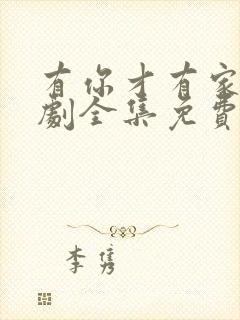 有你才有家
劇全集免費
李隽